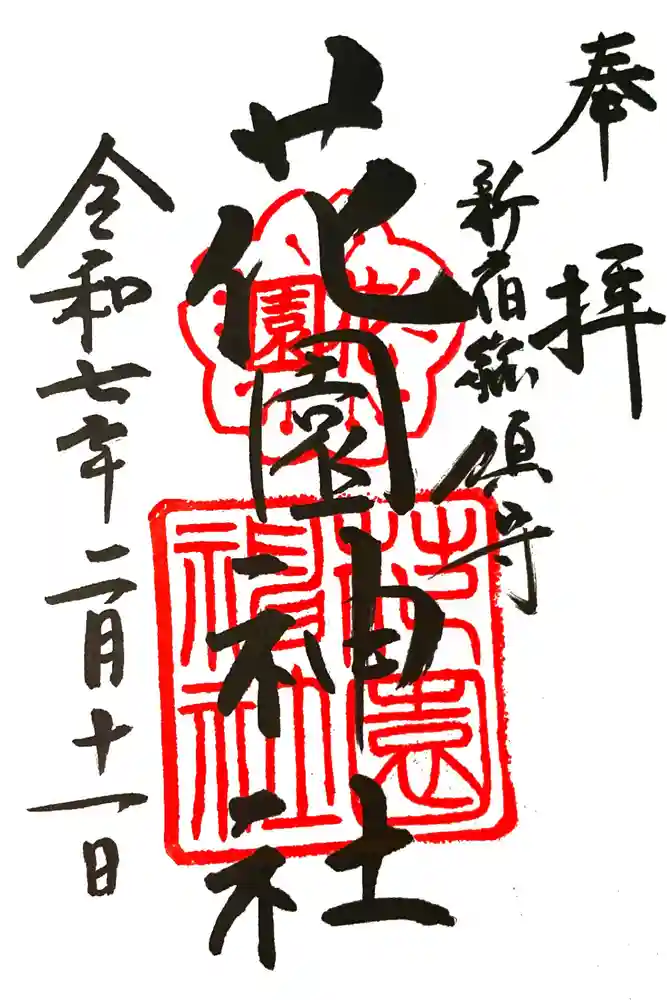 奉拝
新宿総鎮守
花園神社
花園
花園
神社
令和七年二月十一日